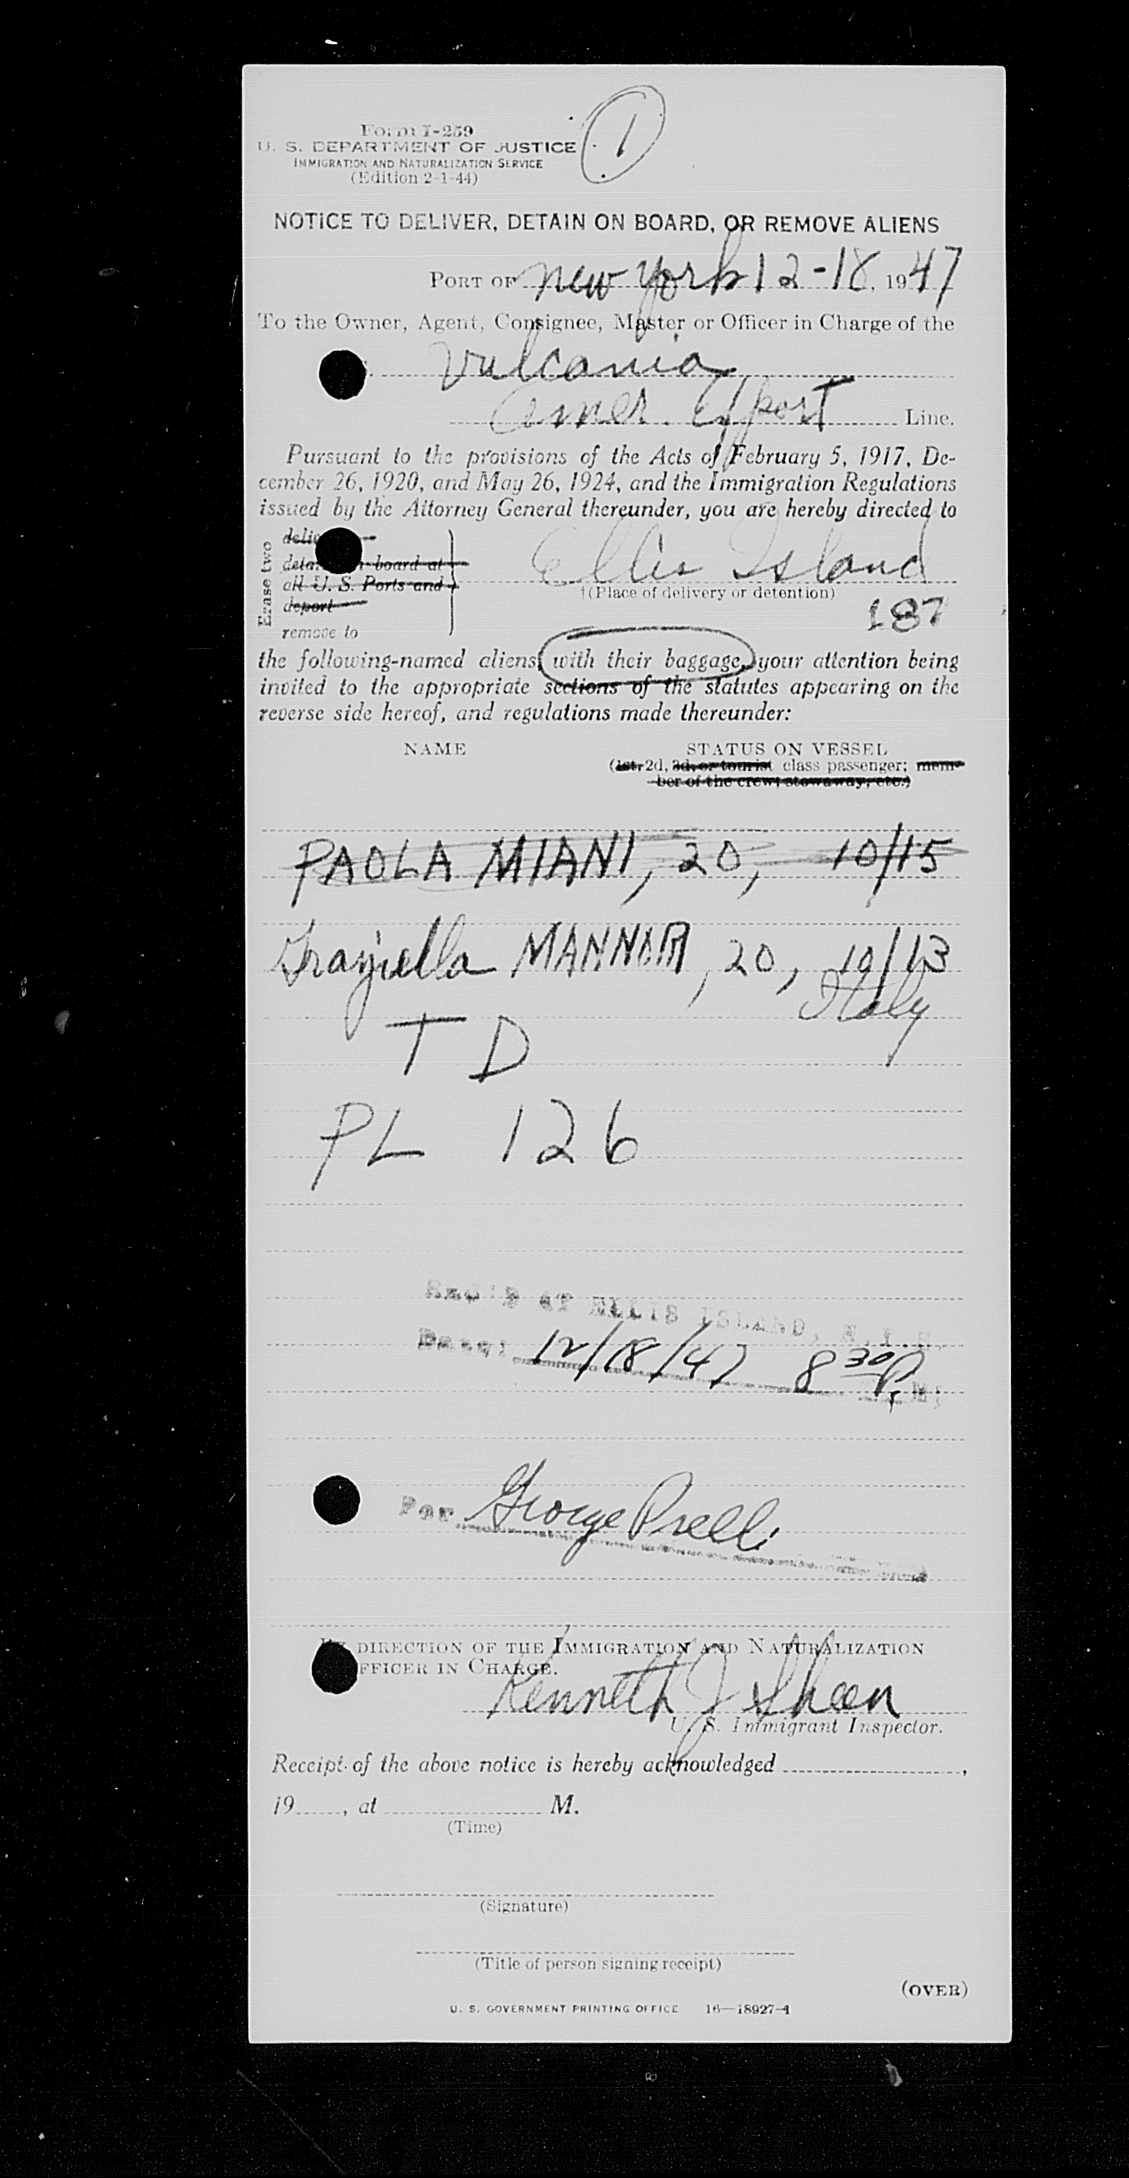 1
Form I-259
U. S. DEPARTMENT OF JUSTICE
IMMIGRATION AND NATURALIZATION SERVICE
(Edition 2-1-44)
NOTICE TO DELIVER, DETAIN ON BOARD, OR REMOVE ALIENS
PORT OF New York 12-18, 1947
To the Owner, Agent, Consignee, Master or Officer in Charge of the
Vulcania
Amer. Export Line.
Pursuant to the provisions of the Acts of February 5, 1917, De-
cember 26, 1920, and May 26, 1924, and the Immigration Regulations
issued by the Attorney General thereunder, you are hereby directed to
Erase two
board at
all U. S. Ports and
deport
remove to
Ellis Island
(Place of delivery or detention)
187
the following-named aliens, with their baggage, your attention being
invited to the appropriate sections of the statutes appearing on the
reverse side hereof, and regulations made thereunder:
NAME STATUS ON VESSEL
(1st, 2d, 3d, or tourist class passenger; mem-
ber of the crew; stowaway, etc.)
PAOLA MIANI, 20, 10/15
Graziella MANNAR, 20, 10/13
Italy
T D
PL 126
REC'D AT ELLIS ISLAND, N.Y.H.
12/18/47 8 30 P. M.
Per George Prelli
BY DIRECTION OF THE IMMIGRATION AND NATURALIZATION
OFFICER IN CHARGE.
Kenneth J Sheen
U. S. Immigrant Inspector.
Receipt of the above notice is hereby acknowledged ,
19 , at M.
(Time)
(Signature)
(Title of person signing receipt)
(OVER)
U. S. GOVERNMENT PRINTING OFFICE 16—18927-1